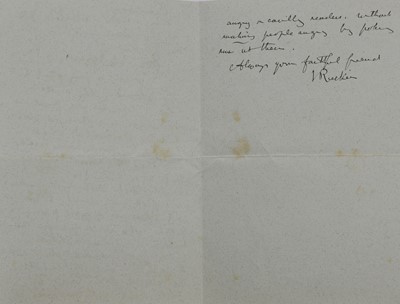 angry & cavilly readers. without
making people angry by poking
me at them.
Always your faithful friend
J Ruskin